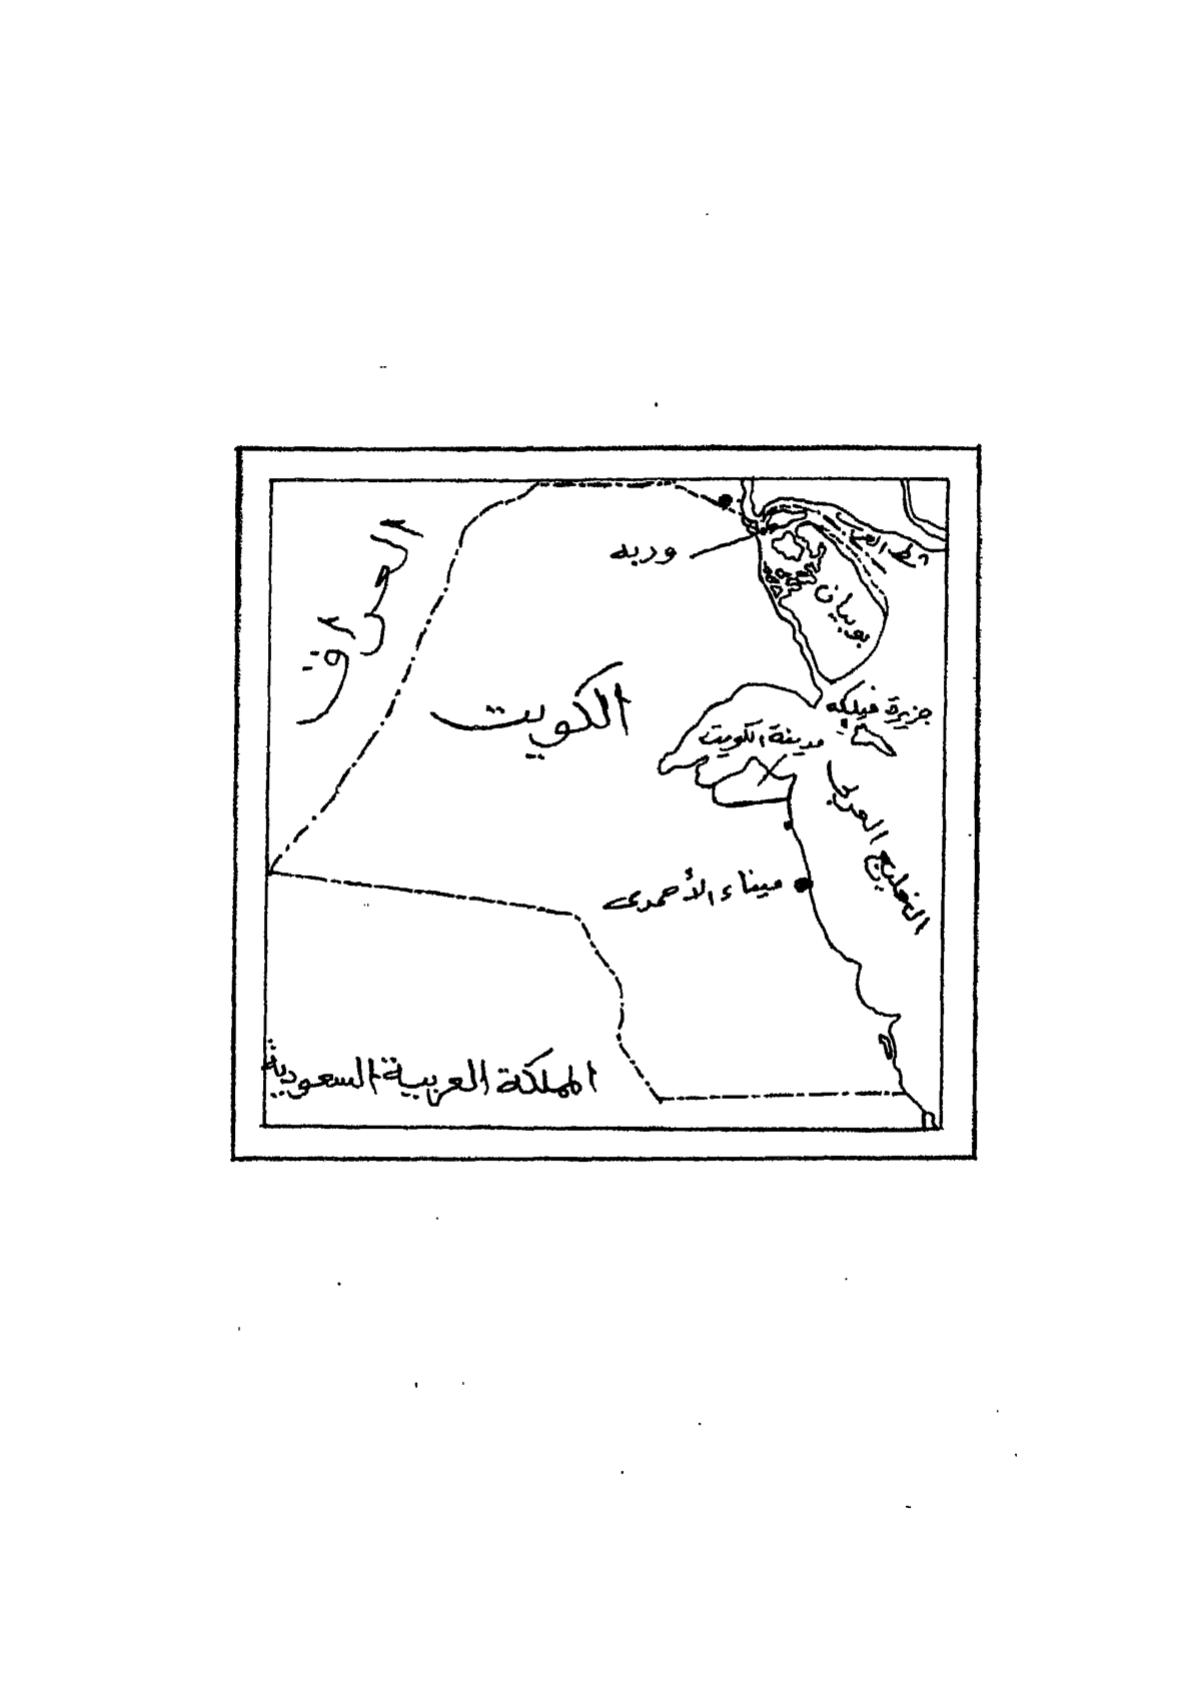 العراق
شط العرب
وربه
بوبيان
الكويت
جزيرة فيلكه
مدينة الكويت
الخليج العربي
ميناء الأحمدى
المملكة العربية السعودية